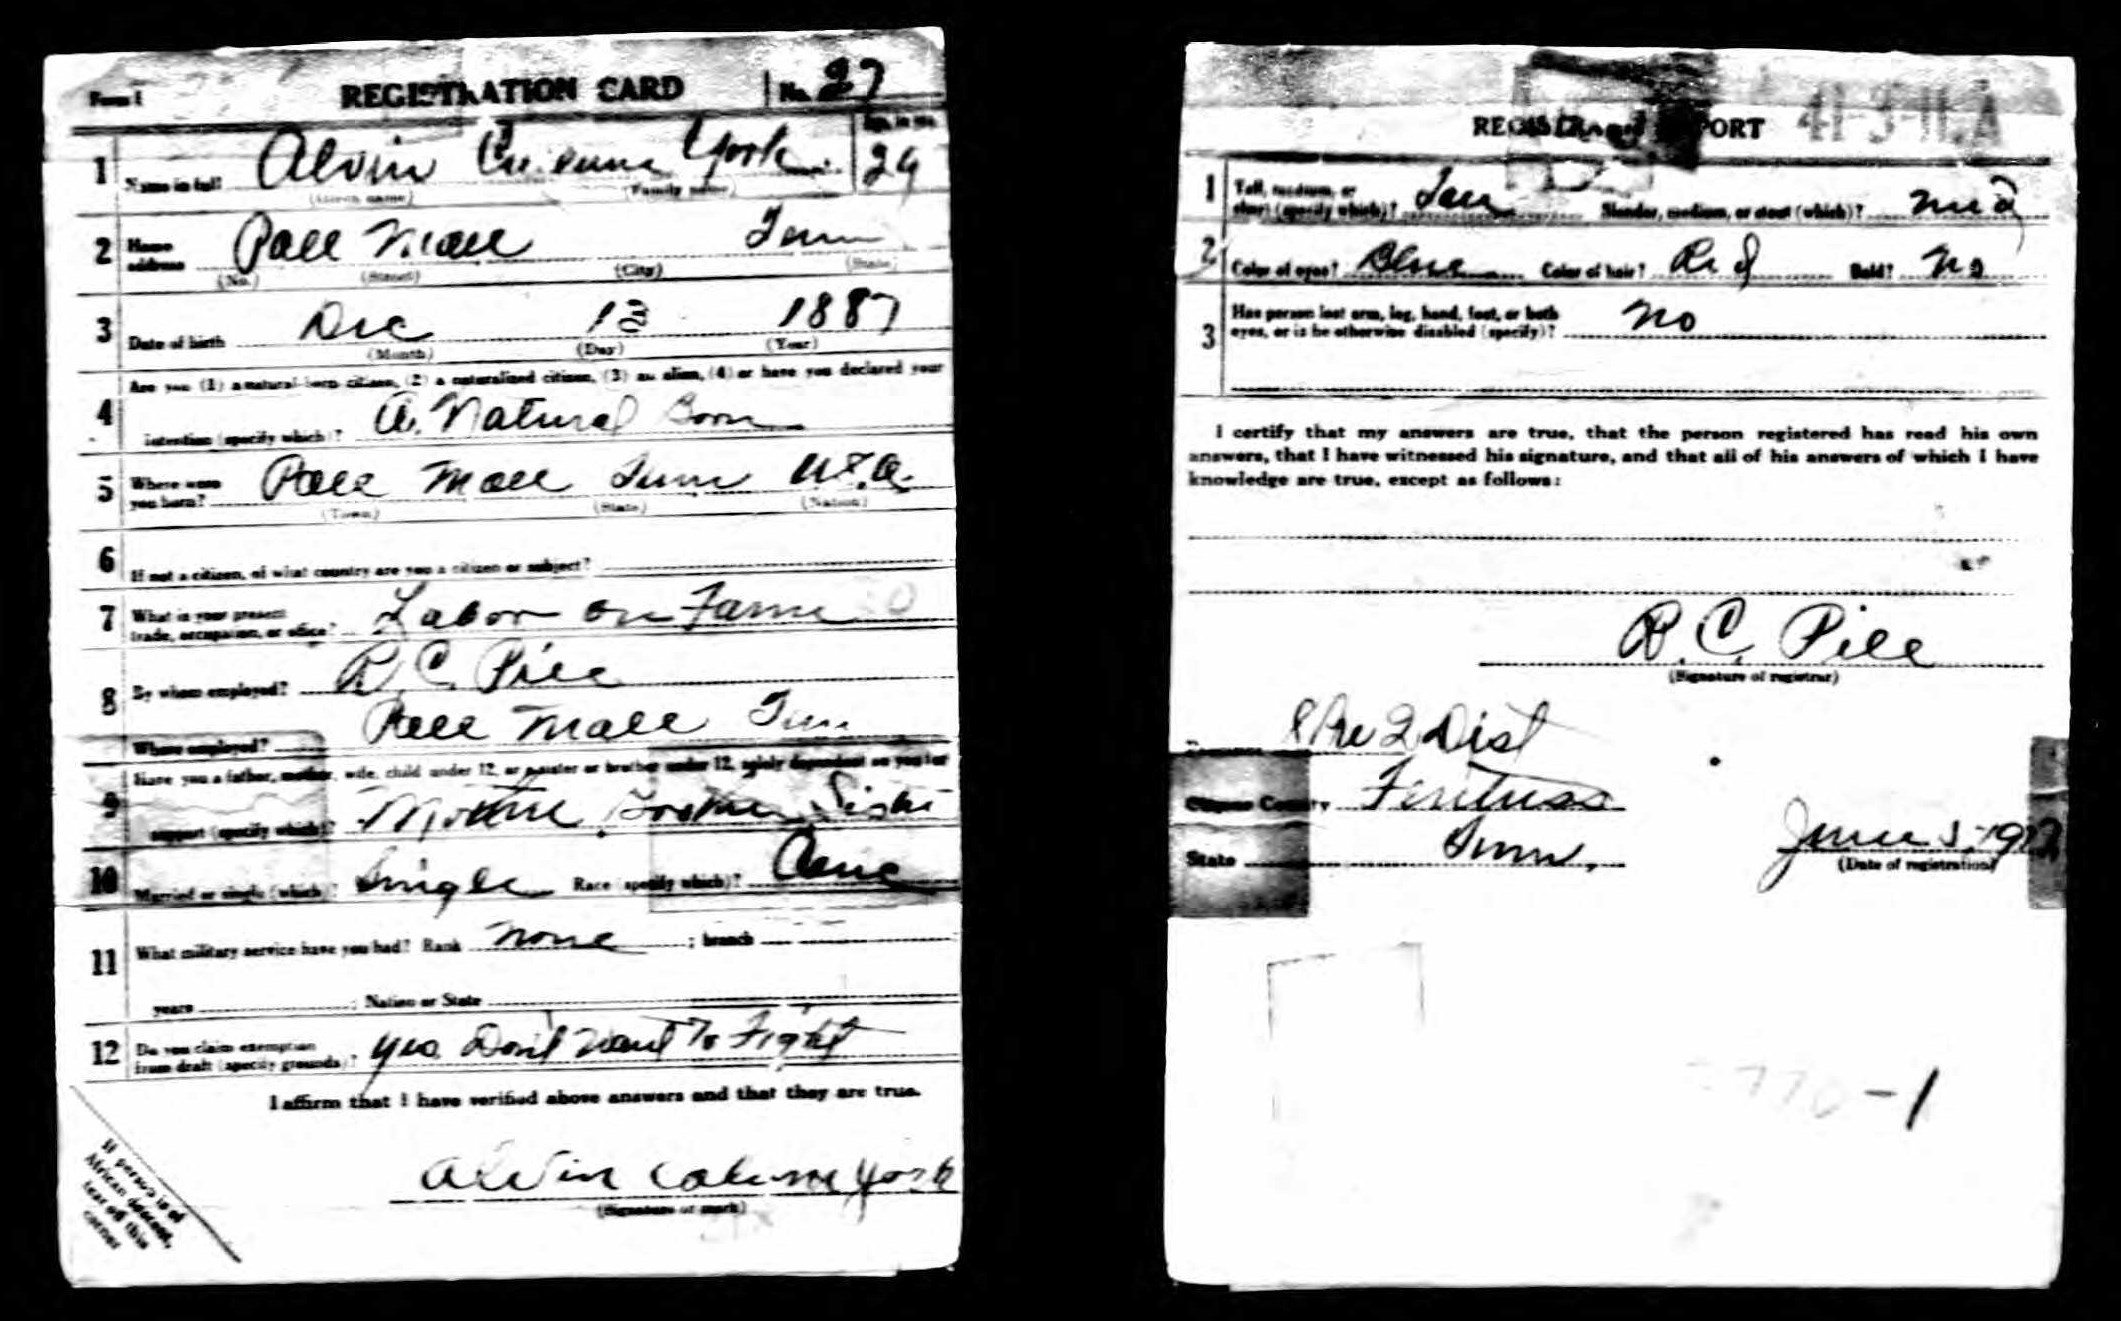 Form 1 REGISTRATION CARD No. 27
1 Name in full Alvin York Age, in yrs. 29
(Given name) (Family name)
2 Home address Pall Mall Tenn
(No.) (Street) (City) (State)
3 Date of birth Dec 13 1887
(Month) (Day) (Year)
Are you (1) a natural-born citizen, (2) a naturalized citizen, (3) an alien, (4) or have you declared your
4 intention (specify which)? A. Natural Born
5 Where were you born? Pall Mall Tenn U.S.A.
(Town) (State) (Nation)
6 If not a citizen, of what country are you a citizen or subject?
7 What is your present trade, occupation, or office? Labor on Farm
8 By whom employed? R. C. Pile
Where employed? Pall Mall Tenn
Have you a father, mother, wife, child under 12, or a sister or brother under 12, solely dependent on you for
9 support (specify which)? Mother, Brother Sister
10 Married or single (which)? Single Race (specify which)?
11 What military service have you had? Rank None ; branch
years ; Nation or State
12 Do you claim exemption from draft (specify grounds)? yes. Don't Want To Fight
I affirm that I have verified above answers and that they are true.
Alvin York
(Signature or mark)
If person is of
African descent,
tear off this
corner
REGISTRAR'S REPORT 41-3-11.A
1 Tall, medium, or short (specify which)? Tall Slender, medium, or stout (which)? Med
2 Color of eyes? Blue Color of hair? Red Bald? No
3 Has person lost arm, leg, hand, foot, or both
eyes, or is he otherwise disabled (specify)? No
I certify that my answers are true, that the person registered has read his own
answers, that I have witnessed his signature, and that all of his answers of which I have
knowledge are true, except as follows:
R. C. Pile
(Signature of registrar)
2 Dist
County Fentress
State Tenn. June 5-1917
(Date of registration)
-1